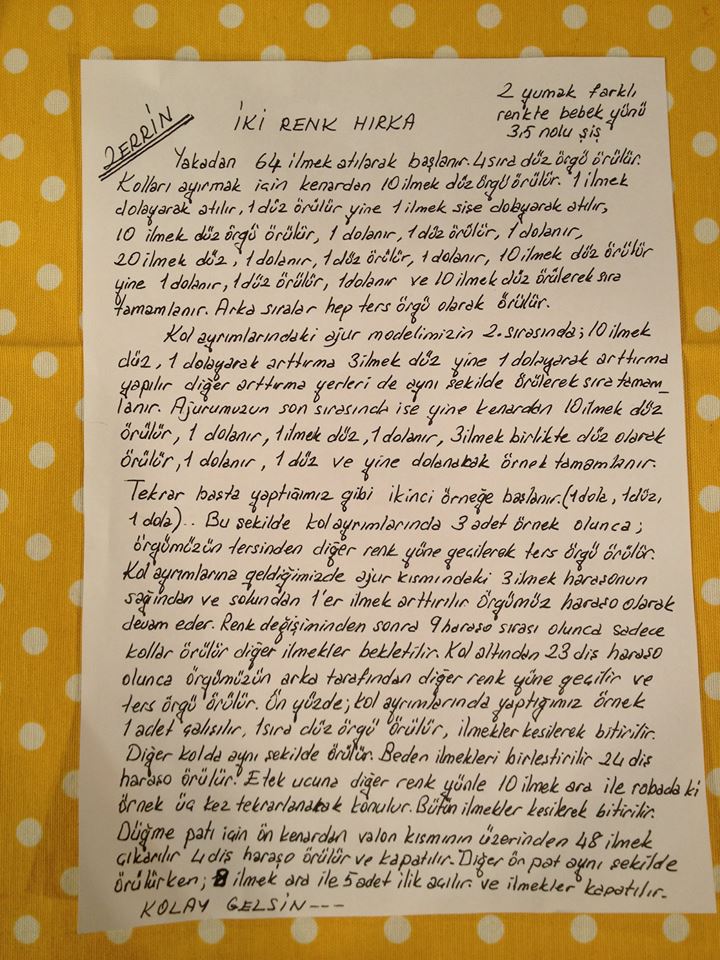 ZERRİN
İKİ RENK HIRKA
2 yumak farklı
renkte bebek yünü
3,5 nolu şiş
Yakadan 64 ilmek atılarak başlanır. 4 sıra düz örgü örülür.
Kolları ayırmak için kenardan 10 ilmek düz örgü örülür. 1 ilmek
dolayarak atılır, 1 düz örülür yine 1 ilmek şişe dolayarak atılır,
10 ilmek düz örgü örülür, 1 dolanır, 1 düz örülür, 1 dolanır,
20 ilmek düz, 1 dolanır, 1 düz örülür, 1 dolanır, 10 ilmek düz örülür
yine 1 dolanır, 1 düz örülür, 1 dolanır ve 10 ilmek düz örülerek sıra
tamamlanır. Arka sıralar hep ters örgü olarak örülür.
Kol ayrımlarındaki ajur modelimizin 2. sırasında; 10 ilmek
düz, 1 dolayarak arttırma 3 ilmek düz yine 1 dolayarak arttırma
yapılır diğer arttırma yerleri de aynı şekilde örülerek sıra tamam_
lanır. Ajurumuzun son sırasında ise yine kenardan 10 ilmek düz
örülür, 1 dolanır, 1 ilmek düz, 1 dolanır, 3 ilmek birlikte düz olarak
örülür, 1 dolanır, 1 düz ve yine dolanarak örnek tamamlanır.
Tekrar başta yaptığımız gibi ikinci örneğe başlanır. (1 dola, 1 düz,
1 dola).. Bu şekilde kol ayrımlarında 3 adet örnek olunca;
örgümüzün tersinden diğer renk yüne geçilerek ters örgü örülür.
Kol ayrımlarına geldiğimizde ajur kısmındaki 3 ilmek haraşonun
sağından ve solundan 1'er ilmek arttırılır örgümüz haraşo olarak
devam eder. Renk değişiminden sonra 9 haraşo sırası olunca sadece
kollar örülür diğer ilmekler bekletilir. Kol altından 23 diş haraşo
olunca örgümüzün arka tarafından diğer renk yüne geçilir ve
ters örgü örülür. Ön yüzde; kol ayrımlarında yaptığımız örnek
1 adet çalışılır, 1 sıra düz örgü örülür, ilmekler kesilerek bitirilir.
Diğer kolda aynı şekilde örülür. Beden ilmekleri birleştirilir 24 diş
haraşo örülür. Etek ucuna diğer renk yünle 10 ilmek ara ile robadaki
örnek üç kez tekrarlanarak konulur. Bütün ilmekler kesilerek bitirilir.
Düğme patı için ön kenardan valon kısmının üzerinden 48 ilmek
çıkarılır 4 diş haraşo örülür ve kapatılır. Diğer ön pat aynı şekilde
örülürken; 8 ilmek ara ile 5 adet ilik açılır. ve ilmekler kapatılır.
KOLAY GELSİN ---